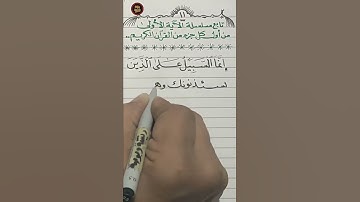 ١١
تابع سلسلة الآية الأولى
من أول كل جزء من القرآن الكريم..
إنما السبيل على الذين
يستئذنونك وهـ